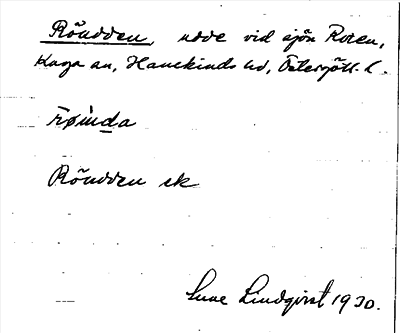 Röudden, udde vid sjön Roten,
Kaga sn, Hanekinds hd, Östergötl. l.
röùnda
Röudden ek
Sune Lindqvist 1930.